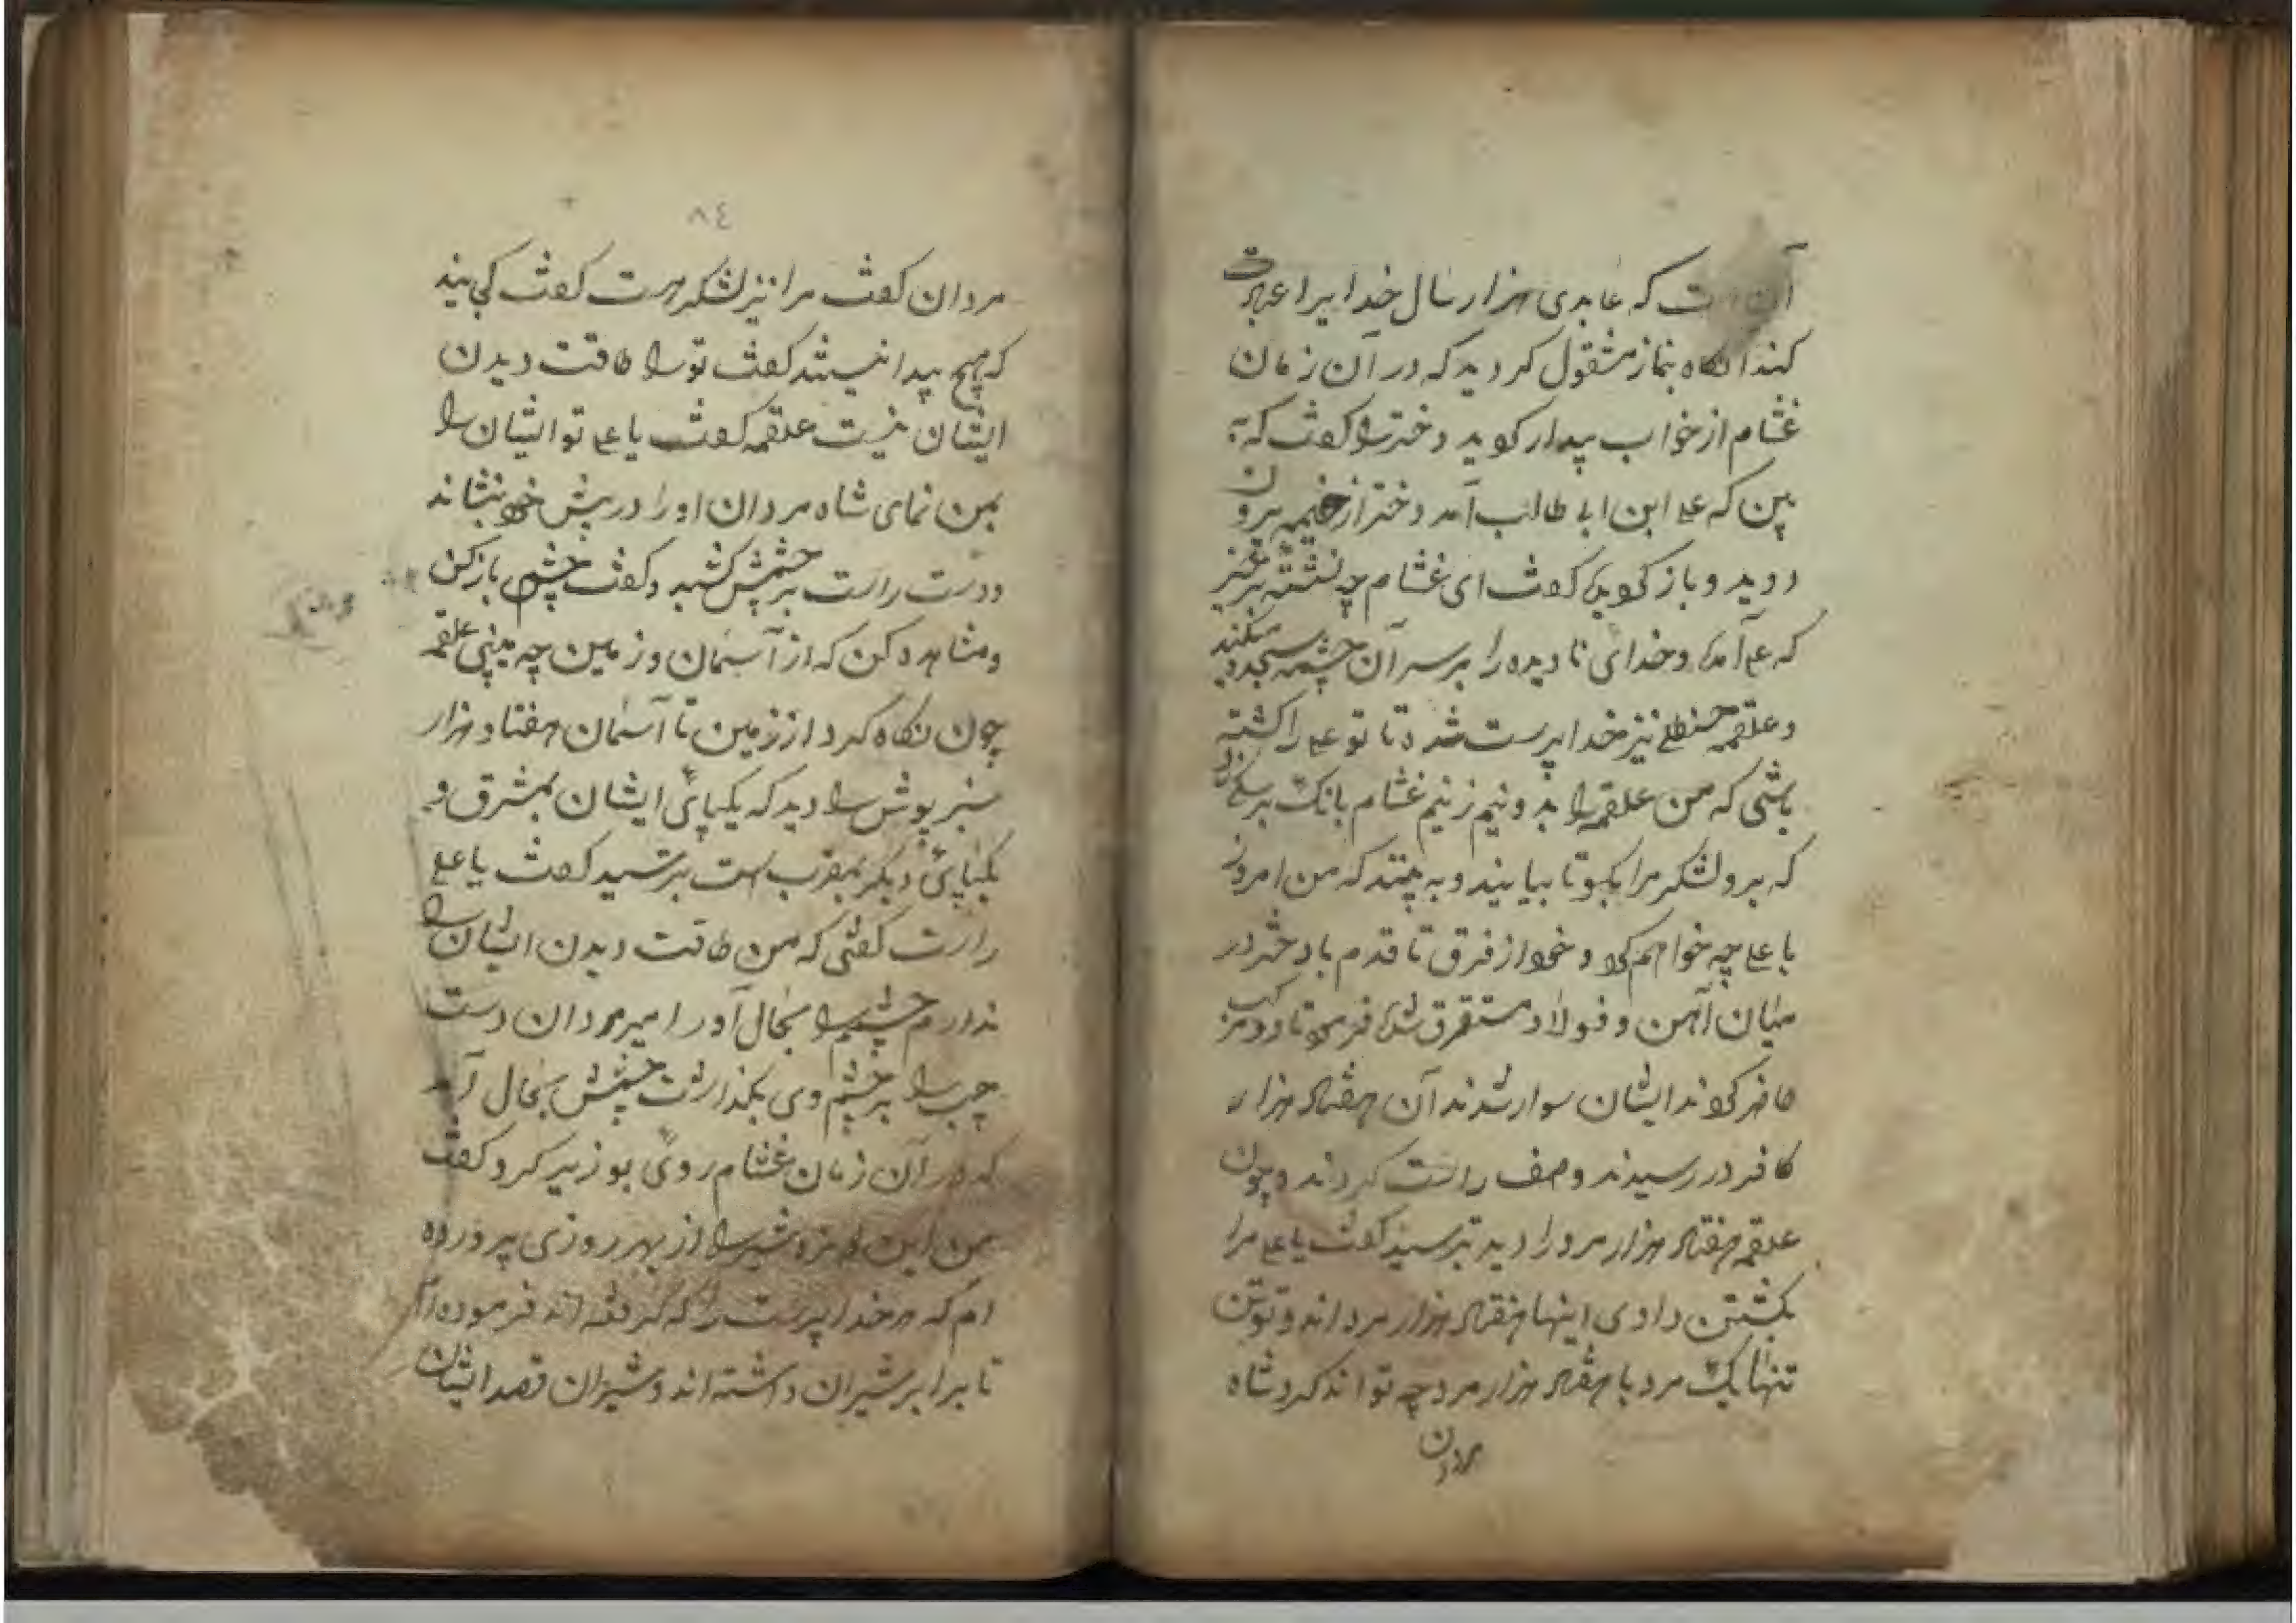 آن است که عابدی هزار سال خدایرا عبادت
کند آنگاه بنماز مشقول کردید که در آن زمان
غشام از خواب بیدار کردید دختر را کفت که
بین که علی ابن ابی طالب آمد دختر از خیمه بیرون
دوید و باز کردید کفت ای غشام چه نشسته برخیز
که علی آمده و خدای نادیده را بر سر آن چشمه سجده میکند
و علقمه حنظلی نیز خدا پرست شده تا تو علی را کشته
باشی که من علقمه را بدو نیم زنیم غشام بانک بر
که برو لشکر مرا بکو تا بیایند و به بینند که من امروز
با علی چه خواهم کرد و خود از فرق تا قدم با دختر در
میان آهن و فولاد مستقرق شده فرمود تا دو مرکب
حاضر کردند ایشان سوار شدند آن هفتاد هزار
کافر در رسیدند و صف راست کردند و چون
علقمه هفتاد هزار مرد را دید بترسید کفت یا علی مرا
بکشتن دادی اینها هفتاد هزار مرد اند و تو تن
تنها یک مرد با هفتاد هزار مرد چه تواند کرد شاه
مردان
٨٤
مردان کفت مرا نیز لشکر هست کفت کی بیند
که هیچ پیدا نیستند کفت تو را طاقت دیدن
ایشان نیست علقمه کفت یا علی تو ایشان را
بمن نمای شاه مردان او را در پیش خود بنشاند
و دست راست بر چشمش کشید و کفت چشم باز کن
و مشاهده کن که از آسمان و زمین چه بینی علقمه
چون نکاه کرد از زمین تا آسمان هفتاد هزار
سبز پوش را دید که یکپای ایشان بمشرق و
یکپای دیکر بمقرب است بترسید کفت یا علی
راست کفتی که من طاقت دیدن ایشان را
ندارم چشم را بحال آور امیر مردان دست
چپ را بر چشم وی بکذاشت چشمش بحال آمد
که در آن زمان غشام روی بوزیر کرد کفت
من این دو شیر را از بهر روزی پرورده
ام که هر خدا پرست را که کرفته اند فرموده ام
تا برابر شیران داشته اند و شیران قصد ایشان